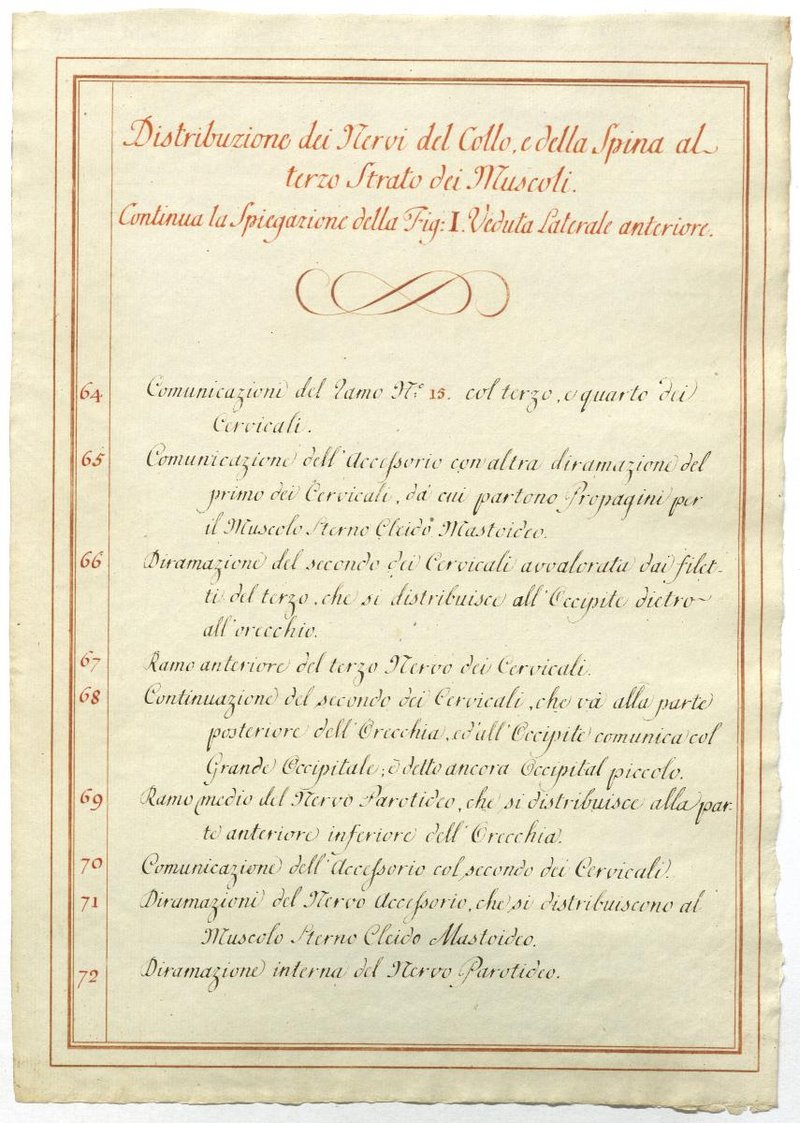 Distribuzione dei Nervi del Collo, e della Spina al
terzo Strato dei Muscoli.
Continua la Spiegazione della Fig: I. Veduta Laterale anteriore.
64 Comunicazioni del Ramo N.º 15. col terzo, e quarto dei
Cervicali.
65 Comunicazione dell'Accessorio con altra diramazione del
primo dei Cervicali, da cui partono Propagini per
il Muscolo Sterno Cleido Mastoideo.
66 Diramazione del secondo dei Cervicali avvalorata dai filet-
ti del terzo, che si distribuisce all'Occipite dietro
all'orecchio.
67 Ramo anteriore del terzo Nervo dei Cervicali.
68 Continuazione del secondo dei Cervicali, che và alla parte
posteriore dell'Orecchia, ed'all'Occipite comunica col
Grande Occipitale; è detto ancora Occipital piccolo.
69 Ramo medio del Nervo Parotideo, che si distribuisce alla par-
te anteriore inferiore dell'Orecchia.
70 Comunicazione dell'Accessorio col secondo dei Cervicali.
71 Diramazioni del Nervo Accessorio, che si distribuiscono al
Muscolo Sterno Cleido Mastoideo.
72 Diramazione interna del Nervo Parotideo.